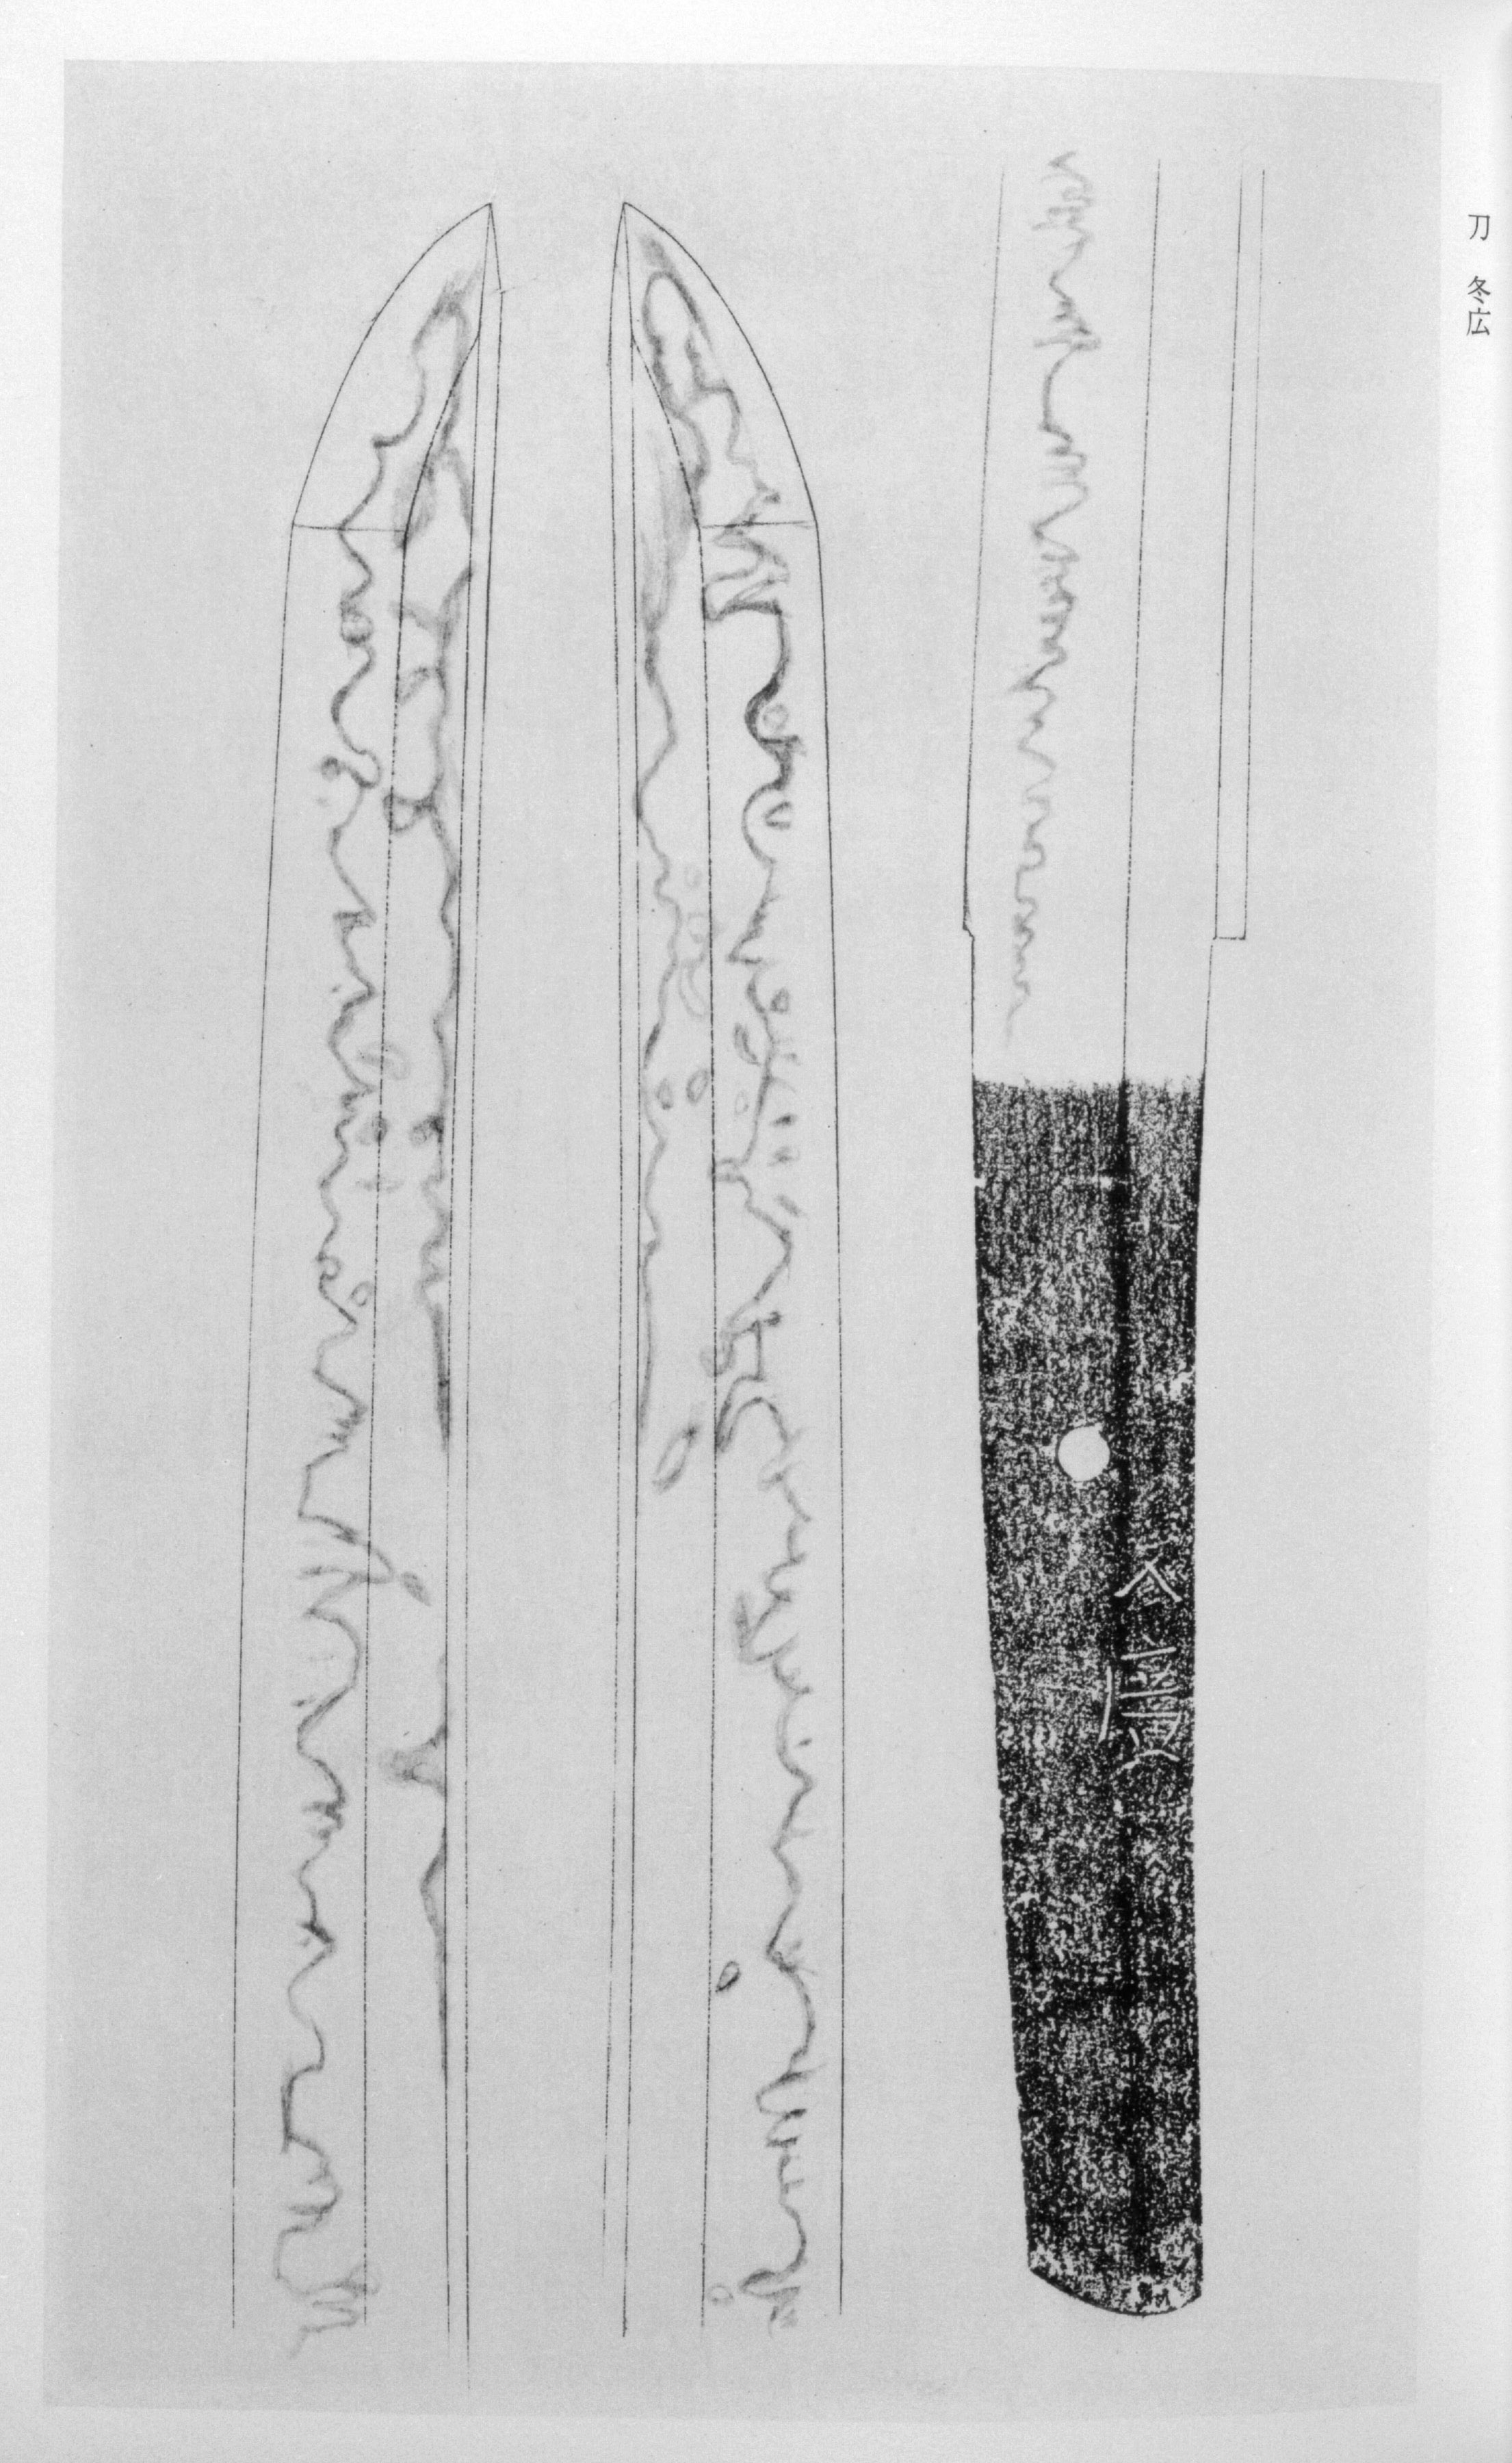 刀 冬広
冬廣